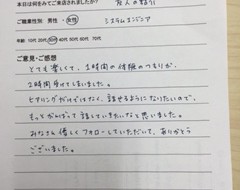 本日は何をみてご来店されましたか? 友人の紹介
ご職業性別 男性・女性 システムエンジニア
年齢 10代 20代 30代 40代 50代 60代 70代
ご意見・ご感想
とても楽しくて、1時間の体験のつもりが、
2時間受けてしまいました。
ヒアリングだけではなく、話せるようになりたいので、
もっとがんばって話していきたいなと思いました。
みなさん優しくフォローしていただいて、ありがとう
ございました。